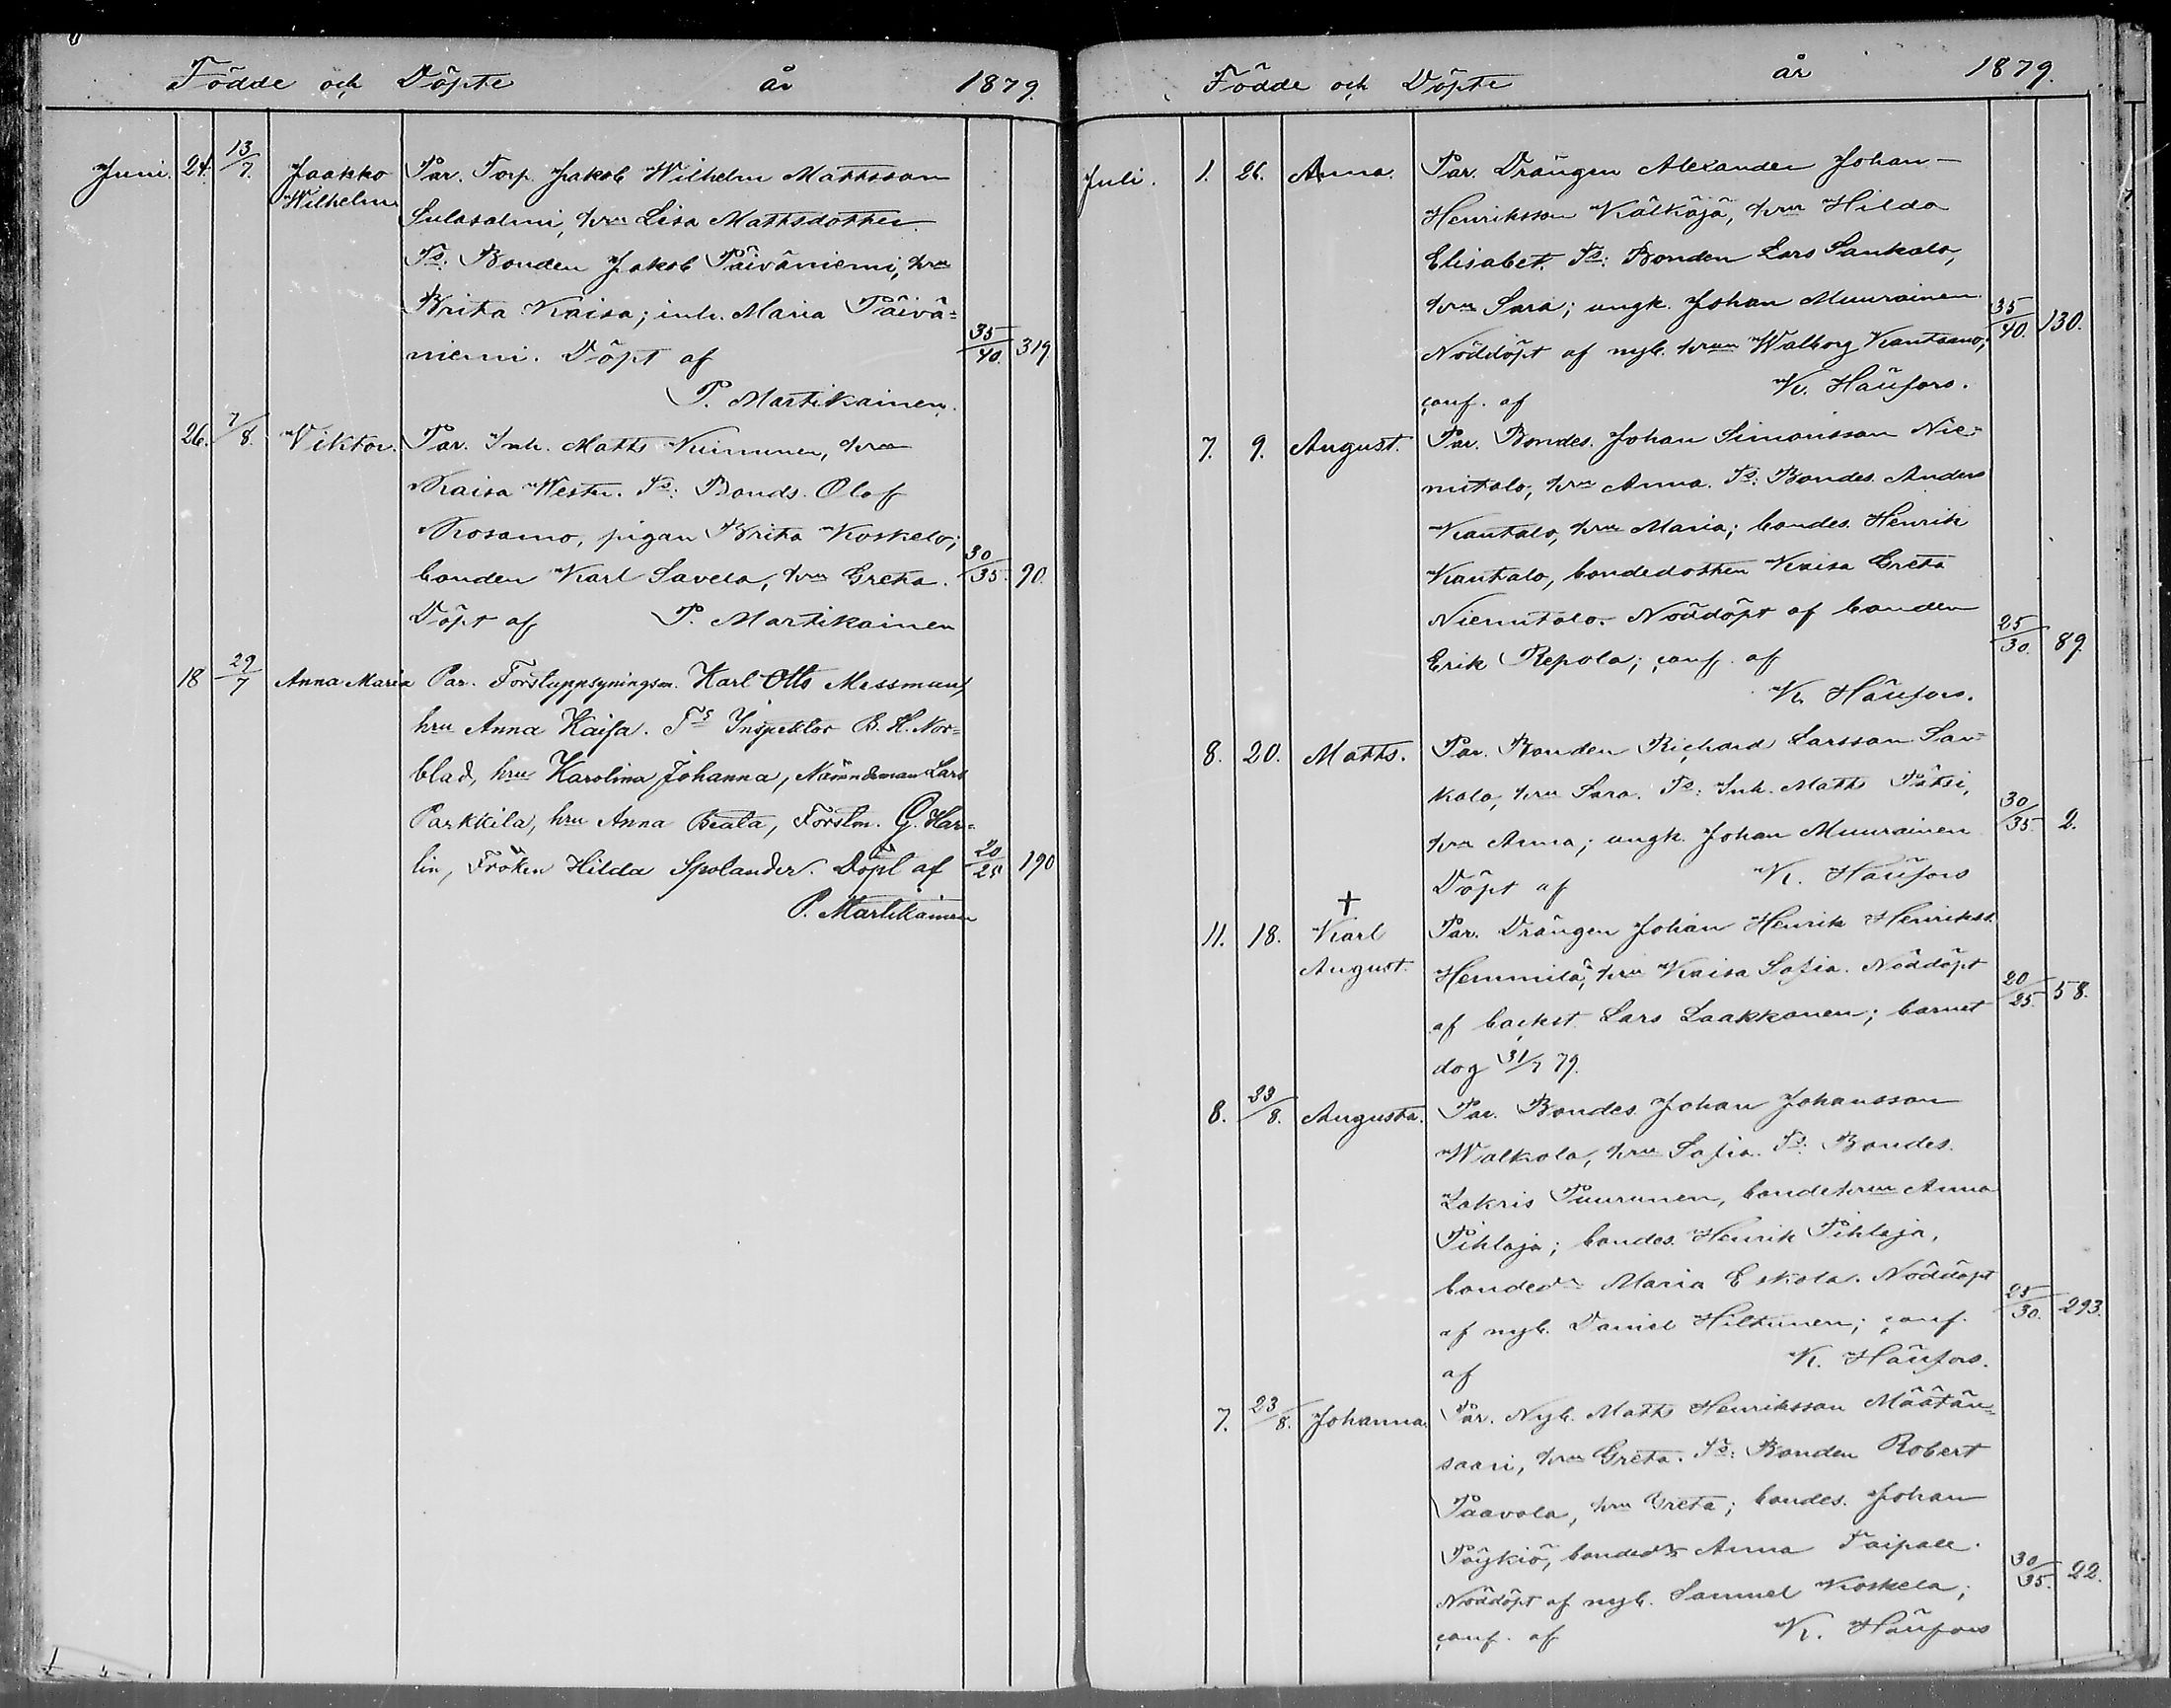 Födde och Döpte år 1879.
Juni. 24. 13/7. Jaakko Wilhelm Par. Torp. Jakob Wilhelm Mattsson
Sulasalmi, hru Lisa Mattsdotter.
Fs: Bonden Jakob Päiväniemi, hru
Brita Kaisa; inh. Maria Päivä=
niemi. Döpt af 35/40. 319
P. Martikainen.
26. 7/8. Viktor. Par. Inh. Matts Kinnunen, hru
Kaisa Wester. Fs: Bonds. Olof
Kosamo, pigan Brita Koskelo;
bonden Karl Savela, hru Greta. 30/35. 90.
Döpt af P. Martikainen
18 29/7 Anna Maria Par. Forstuppsyningsm. Karl Otto Messman,
hru Anna Kaisa. Fs Inspektor B. H. Nor=
blad, hru Karolina Johanna, Nämndeman Lars
Parkkila, hru Anna Beata, Förstm. G. Har=
lin, Fröken Hilda Spolander. Döpt af 20/25 190
P. Martikainen
Födde och Döpte år 1879.
Juli. 1. 26. Anna. Par. Drängen Alexander Johan
Henriksson Kälkäjä, hru Hilda
Elisabet. Fs: Bonden Lars Sankalo,
hru Sara; ungk. Johan Muurainen.
Nöddöpt af nyb. hrun Walborg Kantsamo; 35/40. 130.
conf. af K. Häufors.
7. 9. August. Par. Bondes. Johan Simonsson Nie=
mitalo, hru Anna. Fs: Bondes. Anders
Kantalo, hru Maria; bondes. Henrik
Kantalo, bondedotter Kaisa Greta
Niemitalo. Nöddöpt af bonden
Erik Repola; conf. af 25/30. 89
K. Häufors.
8. 20. Matts. Par. Bonden Richard Larsson San=
kalo, hru Sara. Fs: Inh. Matts Pätsi,
hru Anna; ungk. Johan Muurainen 30/35. 2.
Döpt af K. Häufors
†
11. 18. Karl August. Par. Drängen Johan Henrik Henrikss.
Hemmilä, hru Kaisa Sofia. Nöddöpt
af backst. Lars Laakkonen; barnet 20/25. 58.
dog 31/7 79.
8. 23/8. Augusta. Par. Bondes. Johan Johansson
Walkola, hru Sofia. Fs: Bondes.
Zakris Puurunen, bondehru Anna
Pihlaja; bondes. Henrik Pihlaja,
bonded Maria Eskola. Nöddöpt
af nyb. Daniel Hiltunen; conf. 25/30. 293.
af K. Häufors.
7. 23/8. Johanna. Par. Nyb. Matts Henriksson Määtän=
saari, hru Greta. Fs: Bonden Robert
Paavola, hru Greta; bondes. Johan
Pöykiö, bonded Anna Taipale.
Nöddöpt af nyb. Samuel Koskela; 30/35. 22.
conf. af K. Häufors